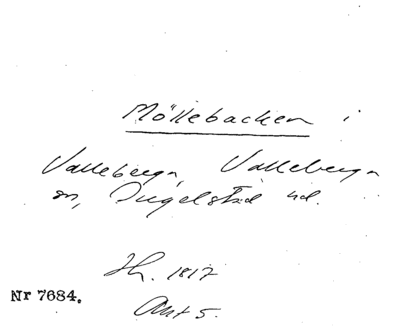 Möllebacken i
Valleberga, Valleberga
sn, Ingelstad hd.
Hr. 1817
Akt 5.
Nr 7684.